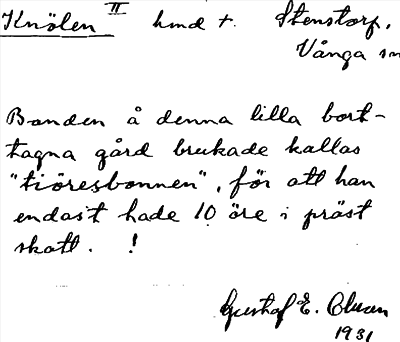 Knölen II hmd t. Stenstorp,
Vånga sn
Bonden å denna lilla bort-
tagna gård brukade kallas
"tiöresbonnen", för att han
endast hade 10 öre i präst
skatt. !
Gustaf E. Olsson
1931